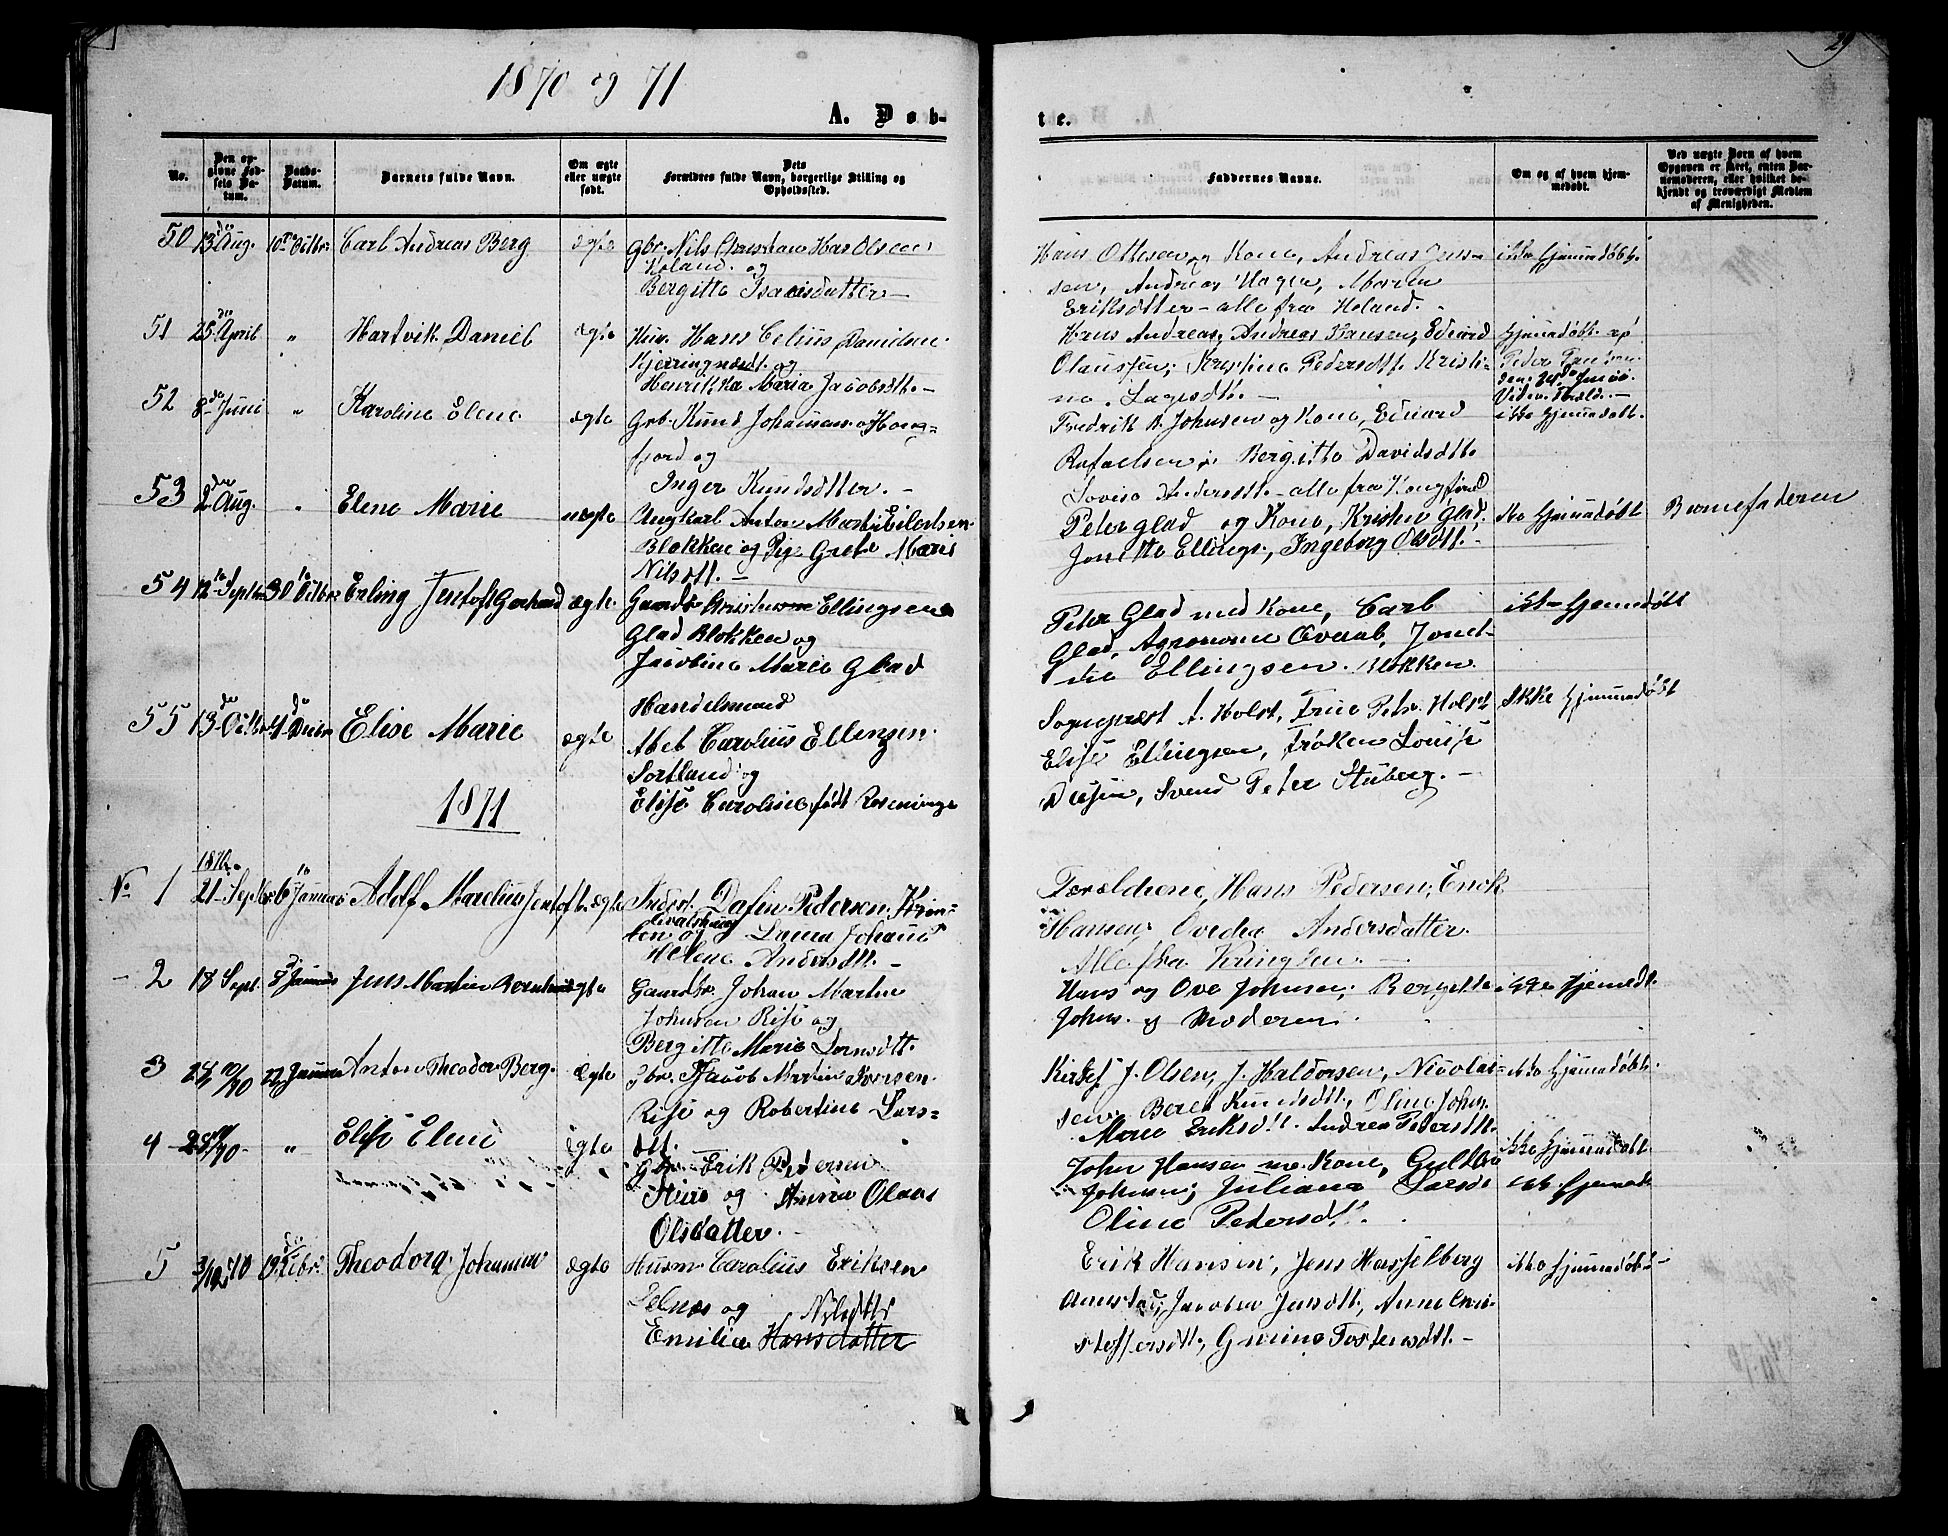 29
1870 og 71
A. Døb-
te.
No.
Den op-
givne Fød-
sels Da-
tum.
Daabs-
Datum.
Barnets fulde Navn.
Om ægte
eller uægte
født.
Dets
Forældres fulde Navn, borgerlige Stilling og
Opholdssted.
Faddernes Navne.
Om og af hvem hjem-
medøbt.
Ved uægte Børn af hvem
Opgaven er skeet, enten Bar-
nemoderen, eller hvilket be-
kjendt og troværdigt Medlem
af Menigheden.
50 13 Aug. 10 Octbr. Carl Andreas Berg ægte Gbr. Nils Christian Olsen
Holand og
Bergitte Isaksdatter
Hans Ottesen og Kone, Andreas Jens-
sen, Andreas Hagen, Maren
Eriksdtter - alle fra Holand.
ikke hjemmedøbt.
51 25 April " Hartvik Daniel ægte Huv. Hans Celius Danielsen
Kjerringnesdt. og
Henrikka Maria Jacobsdt.
Hans Andreas, Andreas Hansen, Edvard
Olaussen, Kristine Pedersdt. Kristi-
na Lagesdt.
hjemmedøbt af
Peder
den 24de Juni
52 8 Juni " Karoline Elene ægte Gbr. Knud Johansen Hog-
fjord og
Inger Knudsdtter.
Fredrik A. Johnsen og Kone, Edvard
Rafaelsen, Bergitte Davidsdt.
Lovisa Andersdt. - alle fra Hogfjord
ikke hjemmedøbt.
53 2 Aug. " Elene Marie uægte Ungkarl Anton Martin Eilertsen
Blokken og Pige Grete Maria
Nilsdtt.
Peter Glad og Kone, Kristen Glad,
Jonette Ellings., Ingeborg Olsdtt.
ikke hjemmedøbt
Barnefaderen
54 12 Septbr 30 Octbr Erling Jentoft Gerhard ægte. Gaardbr Kristian Ellingsen
Glad Blokken og
Jacobine Marie Glad
Peter Glad med Kone, Carl
Glad, Agronome Overaal, Jonet-
te Ellingsen. Blokken
ikke hjemmedøbt
55 13 Octbr 4 Decbr Elise Marie ægte Handelsmand
Abel Carolius Ellingsen
Sortland og
Elise Caroline, født Roeninge
Sognepræst A. Holst, Frue Petr. Holst
Elise Ellingsen, Frøken Louise
Svend Peter Stuberg.
Ikke hjemmedøbt
1871
No. 1 1870 21 Septbr 6 Januar Adolf Marelius Jentoft ægte Inderst Dafin Pedersen Kring-
len og Laura Johanne
Helene Andersdtt.
Forældrene, Hans Pedersen, Erick
Hansen, Ovedia Andersdatter.
Alle fra Kringlen.
2 18 Sept. 8 Januar Jens Martin Bernhard ægte Gaardbr. Johan Martin
Johnsen Risø og
Bergitte Marie Larsdtt.
Hans og Ove Johnsen, Bergitte
Johns. og Moderen.
ikke hjemedt.
3 28/10/70 22 Januar Anton Theodor Berg. ægte Gbr. Jacob Martin Iversen
Risø og Robertine Lars-
dtt.
Kristof J. Olsen, J. Haldorsen, Nicolai-
sen, Beret Knudsdtt., Oline Johns.
Marie Eriksdtt. Andrea Pedersdtt.
ikke hjemmedøbt.
4 28/70 " Elise Elene ægte Gbr. Erik Pedersen
Sture og Anna Olava
Olsdatter.
John Hansen m. Kone,
Johnsen, Juliana Larsdt
Oline Pedersdt.
ikke hjemmedøbt
5 3/12 70 19 Febr. Theodora Johanna ægte Husm. Carolius Eriksen
Selnæs og Nilsdtter
Emilia Hansdatter
Erik Hansen, Jens Hasselberg
Jacobea Jensdt., Anne Chri-
stoffersdt., Grina Tostensdt.
ikke hjemmedøbt